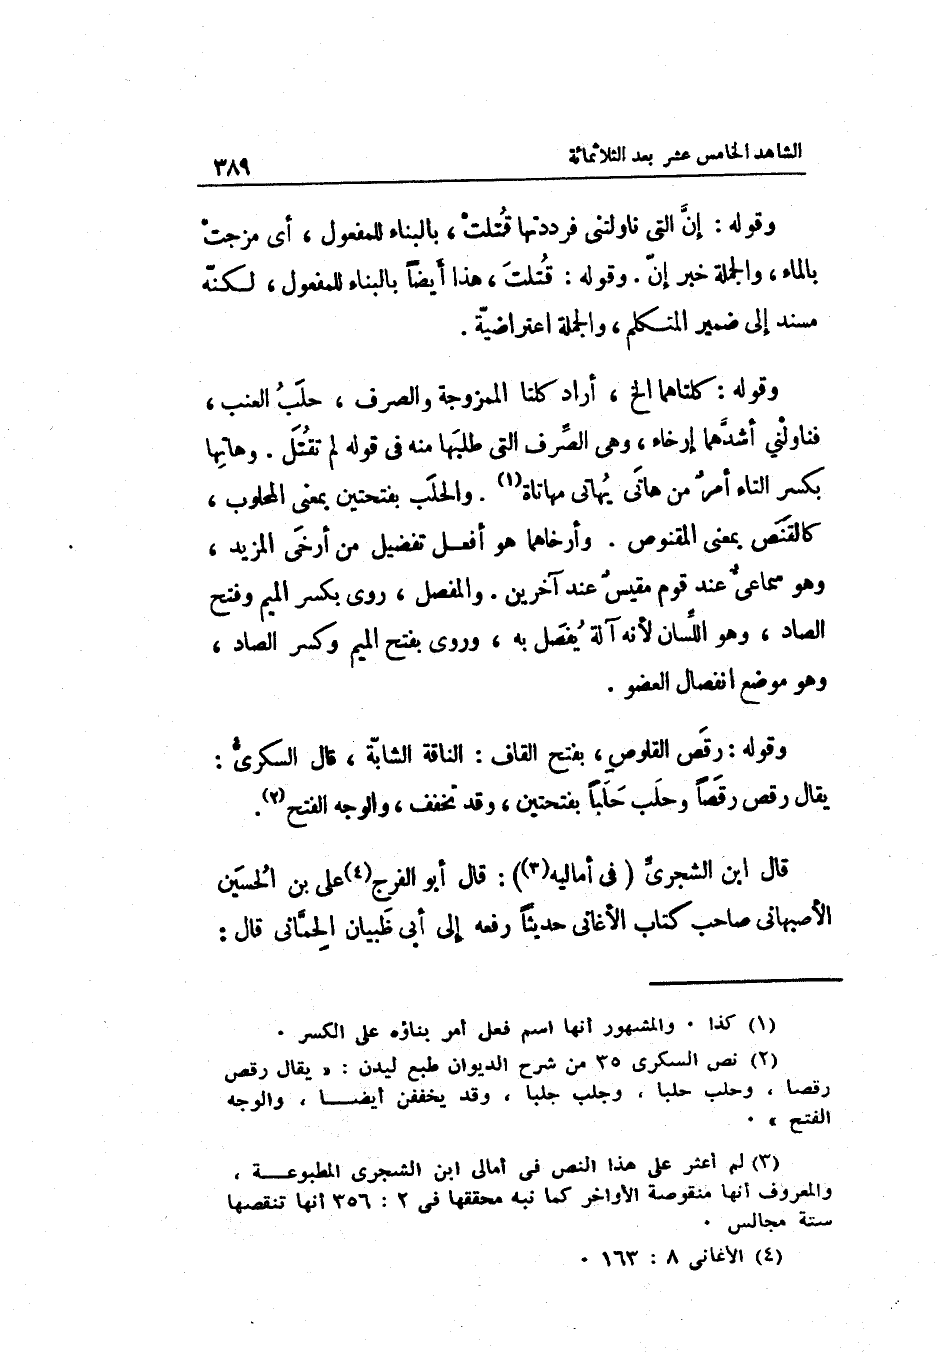 الشاهد الخامس عشر بعد الثلاثمائة
٣٨٩
وقوله : إنَّ التى ناولتنى فرددتها قُتلتْ ، بالبناء للمفعول ، أى مزجتْ
بالماء ، والجملة خبر إنّ . وقوله : قُتلتَ ، هذا أيضاً بالبناء للمفعول ، لـكنّه
مسند إلى ضمير المتـكلم ، والجملة اعتراضيّة .
وقوله : كلتاهما الخ ، أراد كلتا الممزوجة والصرف ، حلَبُ العنب ،
فناولْني أشدَّهما إرخاء ، وهى الصِّرف التى طلبَها منه فى قوله لم تقتُل . وهاتِها
بكسر التاء أمرٌ من هاتَى يُهاتى مهاتاة(١) . والحلَب بفتحتين بمعنى المحلوب ،
كالقنَص بمعنى المقنوص . وأرخاهما هو أفعـل تفضيل من أرخَى المزيد ،
وهو سماعىٌّ عند قوم مقيسٌ عند آخرين . والمفصل ، روى بكسر الميم وفتح
الصاد ، وهو اللِّسان لأنه آلة يُفصَل به ، وروى بفتح الميم وكسر الصاد ،
وهو موضع انفصال العضو .
وقوله : رقَص القلوصِ ، بفتح القاف : الناقة الشابّة ، قال السكرىُّ :
يقال رقص رقَصاً وحلَب حَلَباً بفتحتين ، وقد تخفف ، والوجه الفتح(٢) .
قال ابن الشجرىِّ ( فى أماليه(٣)) : قال أبو الفرج(٤) على بن الحسَين
الأصبهانى صاحب كتاب الأغانى حديثاً رفعه إلى أبى ظَبيان الحِمَّانى قال :
(١) كذا . والمشهور أنها اسم فعل أمر بناؤه على الكسر .
(٢) نص السكرى ٣٥ من شرح الديوان طبع ليدن : « يقال رقص
رقصا ، وحلب حلبا ، وجلب جلبا ، وقد يخففن أيضـــا ، والوجه
الفتح » .
(٣) لم أعثر على هذا النص فى أمالى ابن الشجرى المطبوعـــة ،
والمعروف أنها منقوصة الأواخر كما نبه محققها فى ٢ : ٣٥٦ أنها تنقصها
ستة مجالس .
(٤) الأغانى ٨ : ١٦٣ .